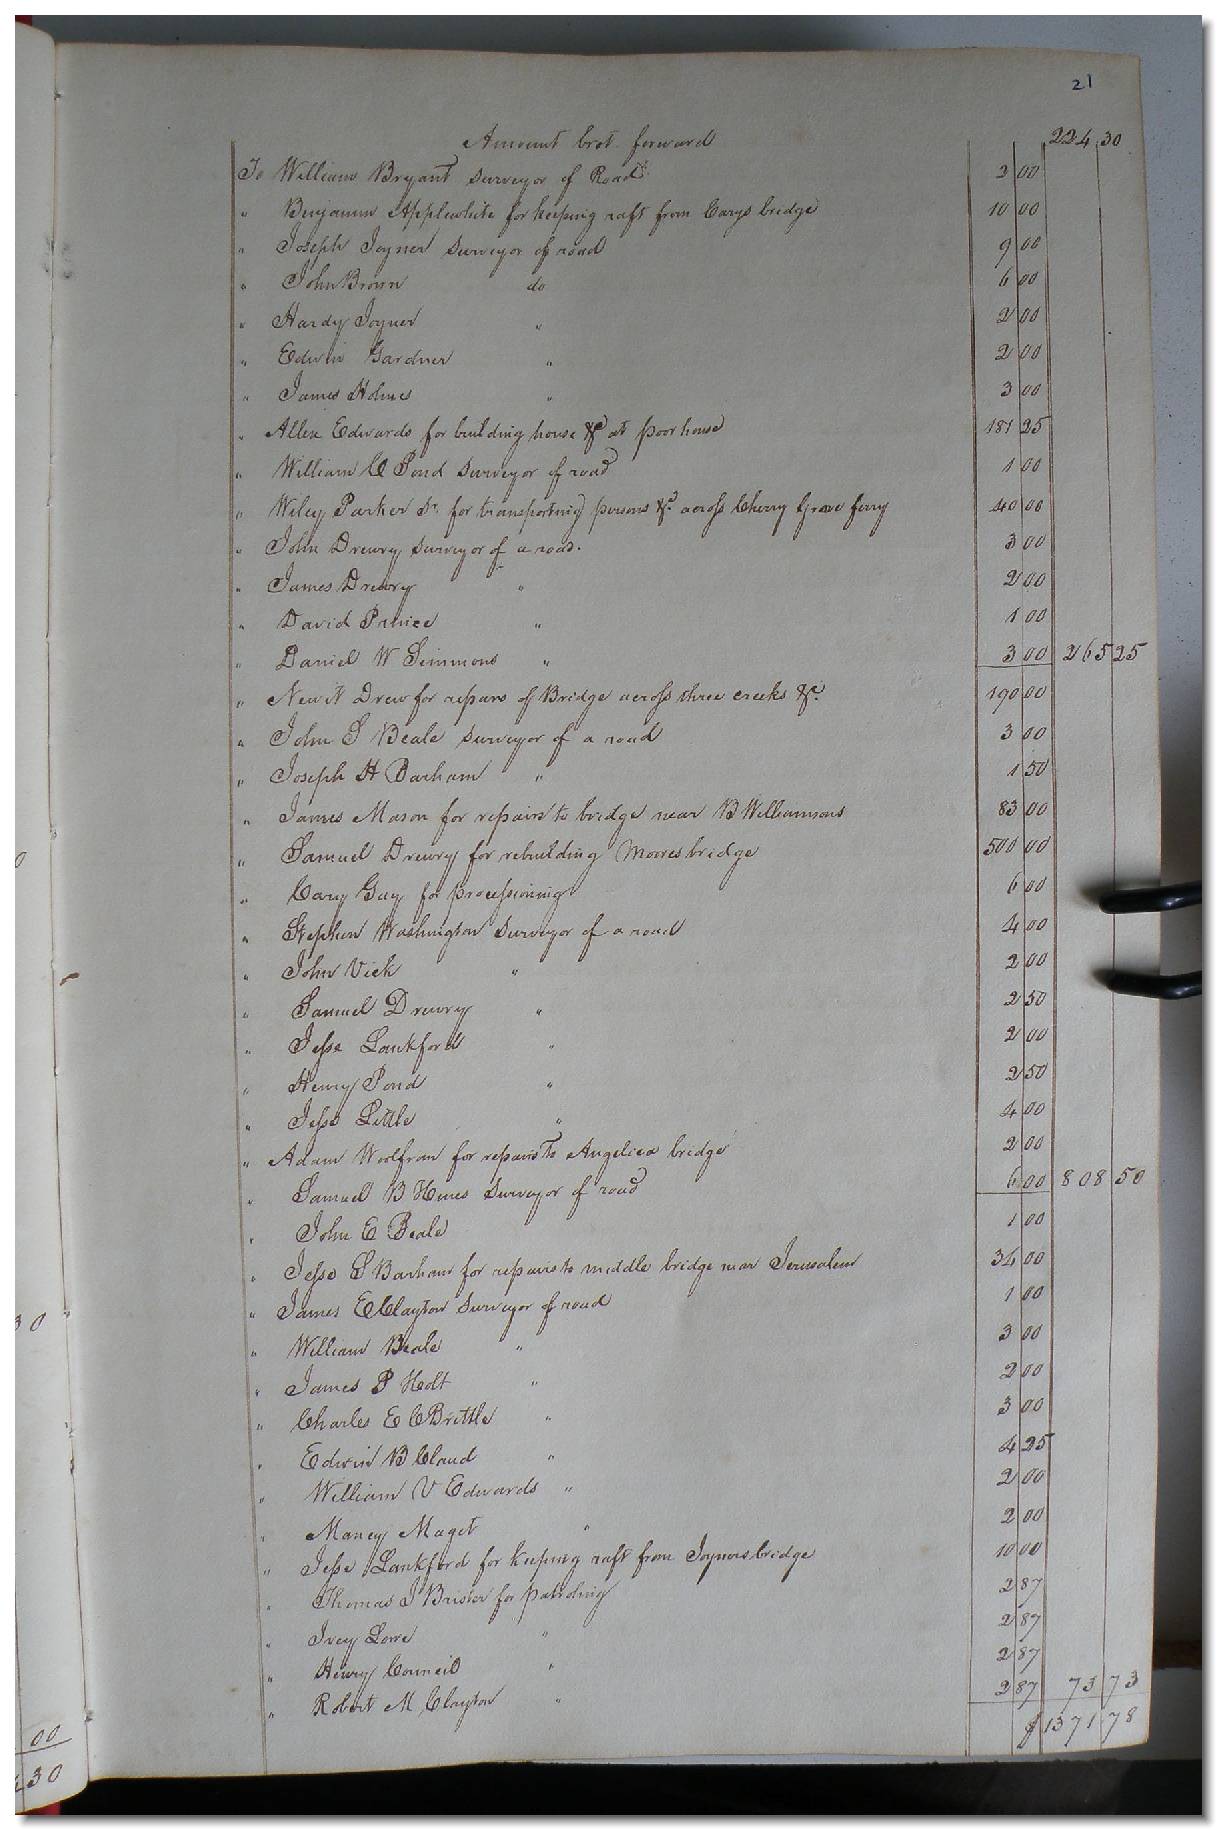 21
Amount brot forward 224 30
To William Bryant Surveyor of Road 2 00
" Benjamin Applewhite for keeping raft from Carys bridge 10 00
" Joseph Joyner Surveyor of road 9 00
" John Brown do 6 00
" Hardy Joyner " 2 00
" Edwin Gardner " 2 00
" James Holmes " 3 00
" Allen Edwards for building house &c at poor house 181 25
" William C Pond Surveyor of road 1 00
" Wiley Parker Sr. for transporting persons &c. across Cherry Grove ferry 40 00
" John Drewry Surveyor of a road. 3 00
" James Drewry " 2 00
" David Prince " 1 00
" Daniel W Simmons " 3 00 265 25
" Newit Drew for repairs of Bridge across three creeks &c. 190 00
" John S Beale Surveyor of a road 3 00
" Joseph H Barham " 1 50
" James Mason for repairs to bridge near B Williamsons 83 00
" Samuel Drewry for rebuilding Moores bridge 500 00
" Cary Guy for processioning 6 00
" Stephen Washington Surveyor of a road 4 00
" John Vick " 2 00
" Samuel Drewry " 2 50
" Jesse Lankford " 2 00
" Henry Pond " 2 50
" Jesse Little " 4 00
" Adam Woolfran for repairs to Angelica bridge 2 00
" Samuel B Hines Surveyor of road 6 00 808 50
" John E Beale 1 00
" Jesse S Barham for repairs to middle bridge near Jerusalem 34 00
" James E Clayton Surveyor of road 1 00
" William Beale " 3 00
" James P Holt " 2 00
" Charles E C Brittle " 3 00
" Edwin B Claud " 4 25
" William V Edwards " 2 00
" Maney Maget " 2 00
" Jesse Lankford for keeping raft from Joyners bridge 10 00
" Thomas J Brister for patroling 2 87
" Ivey Lowe " 2 87
" Henry Council " 2 87
" Robert M Clayton " 2 87 73 73
$ 1371 78
0
30
00
30